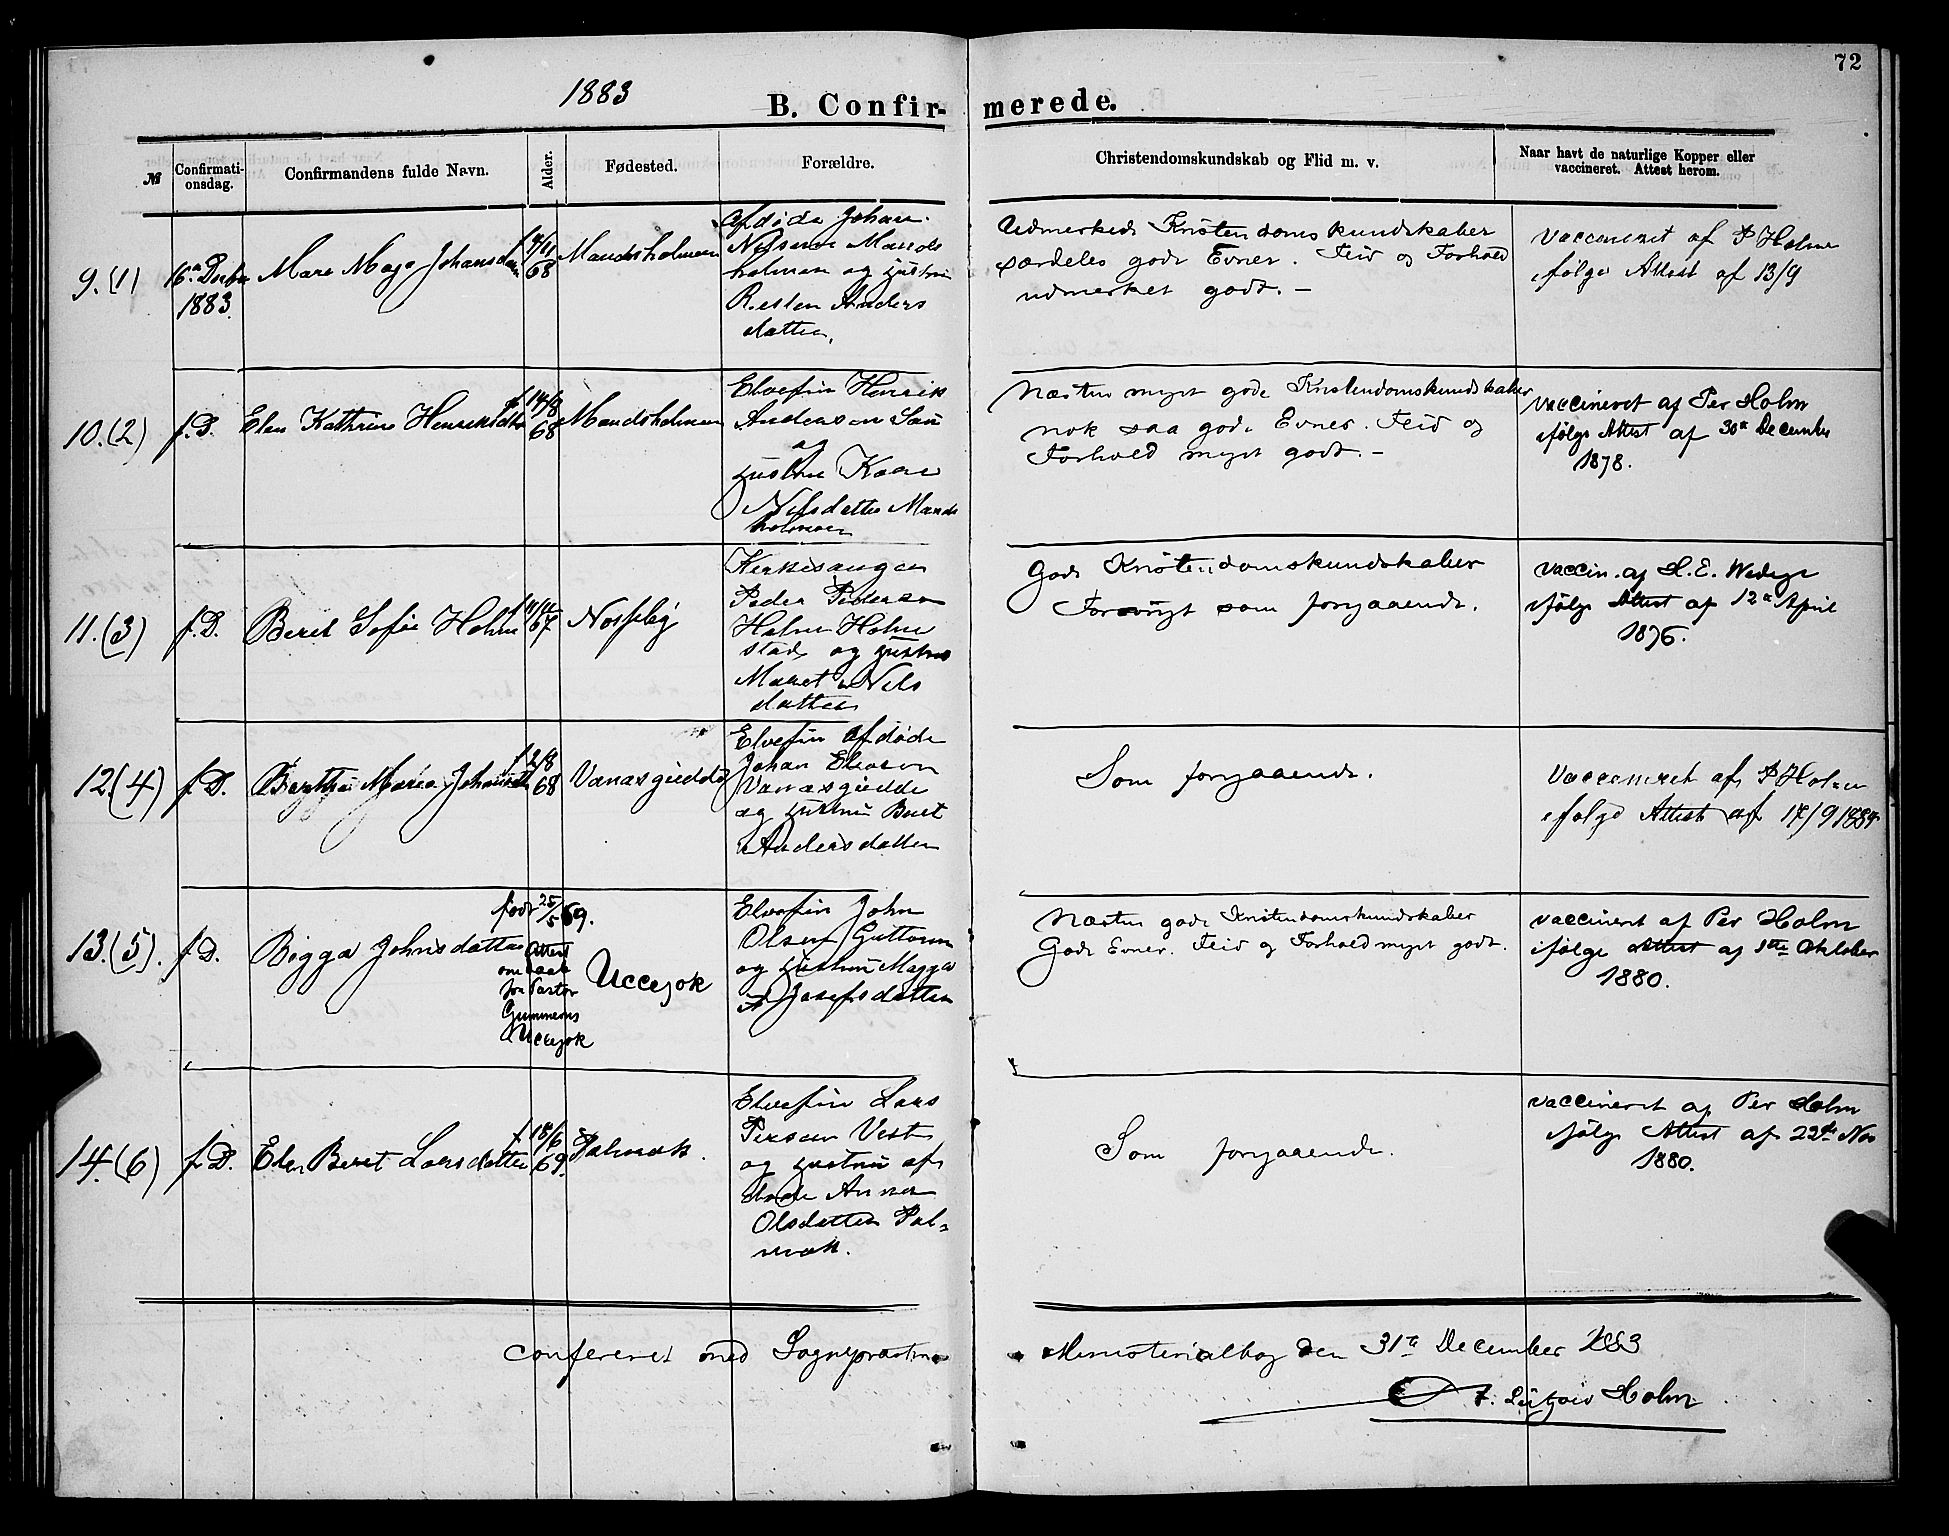 72
1883
B. Confirmerede.
№
Confirmationsdag.
Confirmandens fulde Navn.
Alder.
Fødested.
Forældre.
Christendomskundskab og Flid m. v.
Naar havt de naturlige Kopper eller
vaccineret. Attest herom.
9.(1)
16de Decbr
1883.
Mare Johansdatter
68
Mandsholmen
Afdøde Johan
Nilsen Mands
holmen og Hustru
Anders
datter,
Udmerkede Kristendomskundskaber
særdeles gode Evner. Flid og Forhold
udmerket godt. –
Vaccineret af P Holm
ifølge Attest af 13/9
10.(2)
f. D.
Elen Kathrine Henriksdtr
f 14/8
68
Mandsholmen
Elvefin Henrik
Andersen
og
Hustru
Nilsdatter Mands
holmen
Næsten meget gode Kristendomskundskaber
nok saa gode Evner. Flid og
Forhold meget godt. –
Vaccineret af Per Holm
ifølge Attest af 30te December
1878.
11.(3)
f. D.
Beret Sofie Holm
67
Peder Pedersen
Holm Holme
stad og Hustru
Maret Nils
datter
Gode Kristendomskundskaber
Forøvrigt som forgaaende.
Vaccin. af H. E. Wadsge
ifølge Attest af 12te April
1876.
12.(4)
f. D.
Maria Johansdtr
f 2/8
68
Vanasgiedde
Elvefin Afdøde
Johan
Vanasgiedde
og Hustru Beret
Andersdatter
Som forgaaende.
Vaccineret af P Holm
ifølge Attest af 17/9
13.(5).
f. D.
Bigga Johnsdatter
født 25/5 69.
Attest
om Daab
fra Pastor
Gummerus
Utcejok
Utcejok
Elvefin John
Olsen Guttorm
og Hustru Magga
Josefsdatter
Næsten gode Kristendomskundskaber
Gode Evner. Flid og Forhold meget godt.
Vaccineret af Per Holm
ifølge Attest af 1ste Oktober
1880.
14.(6)
f. D.
Elen Beret Larsdatter
f 18/6
69.
Palmak.
Elvefin Lars
Persen Vest
og Hustru af
døde Anna
Olsdatter Pol-
mak.
Som forgaaende.
Vaccineret af Per Holm
ifølge Attest af 22de Nov
1880.
confereret med Sognepræstens
Ministerialbog den 31te December 1883
Holm